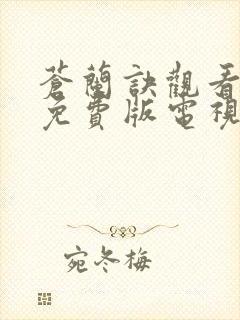 蒼蘭訣觀看
免費版電視
宛冬梅